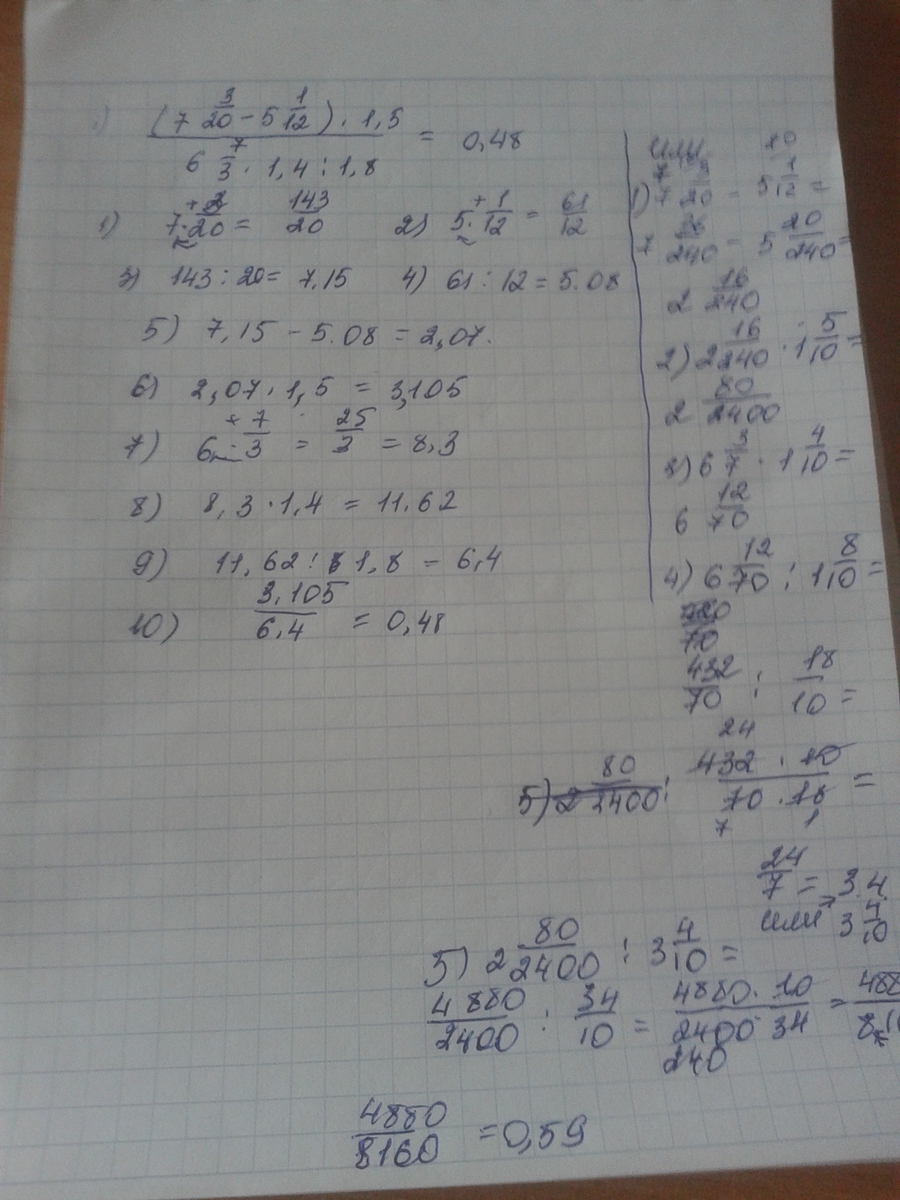 1) (7 3/20 - 5 1/12) · 1,5 / 6 7/3 · 1,4 : 1,8 = 0,48
1) 7 · + 3/20 = 143/20 2) 5 · + 1/12 = 61/12
3) 143 : 20 = 7,15 4) 61 : 12 = 5.08
5) 7,15 - 5.08 = 2,07.
6) 2,07 · 1,5 = 3,105
7) 6 + 7/3 = 25/3 = 8,3
8) 8,3 · 1,4 = 11,62
9) 11,62 : 1,8 = 6,4
10) 3,105/6,4 = 0,48
или
1) 7 3/20 - 5 1/12 =
7 36/240 - 5 20/240 =
2 16/240
2) 2 16/240 · 1 5/10 =
2 80/2400
3) 6 3/7 · 1 4/10 =
6 12/70
4) 6 12/70 : 1 8/10 =
432/70 : 18/10 =
24
5) 2 80/2400 : 432 · 10/70 · 18 =
7 1
24/7 = 3.4
или 3 4/10
5) 2 80/2400 : 3 4/10 =
4880/2400 : 34/10 = 4880 · 10/2400 · 34 =
240
4880/8160 = 0,59